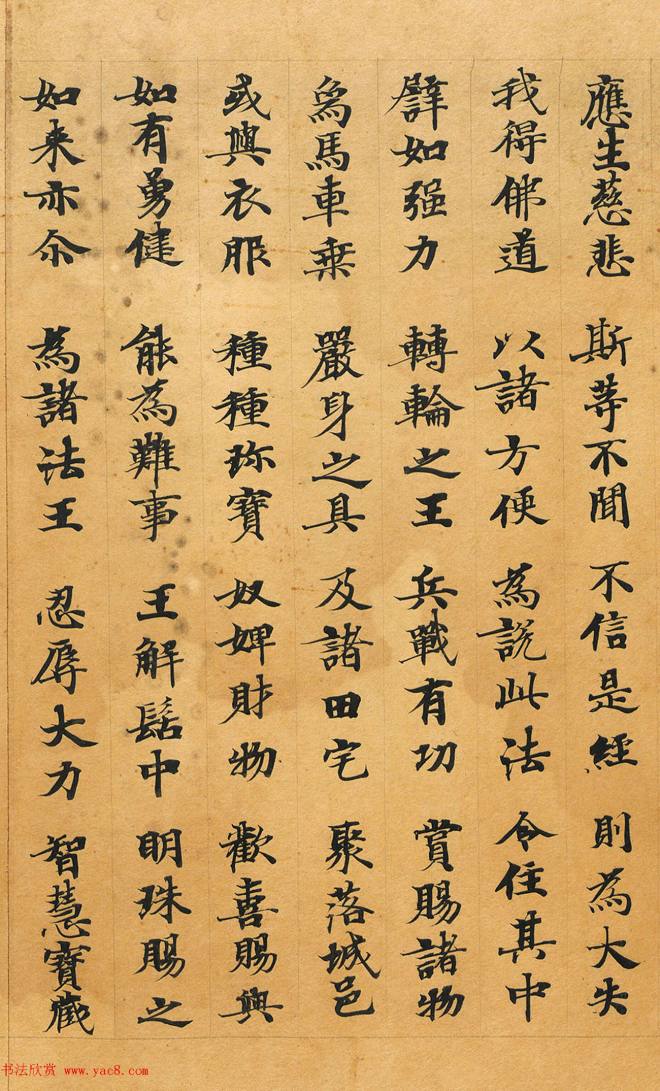 應生慈悲 斯等不聞 不信是經 則為大失
我得佛道 以諸方便 為説此法 令住其中
譬如强力 轉輪之王 兵戰有功 賞賜諸物
爲馬車乗 嚴身之具 及諸田宅 聚落城邑
或與衣服 種種珎寶 奴婢財物 歡喜賜與
如有勇健 能為難事 王解髻中 明珠賜之
如来亦尒 為諸法王 忍辱大力 智慧寶藏
书法欣赏 www.yac8.com